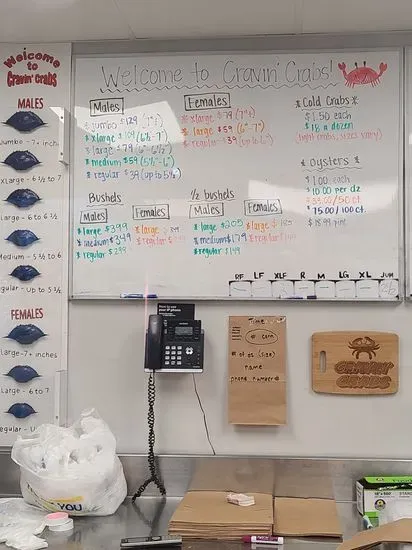 Welcome
to
Cravin' Crabs
MALES
Jumbo - 7+ inch
XLarge - 6 ½ to 7
Large - 6 to 6 ½
Medium - 5 ½ to 6
Regular - Up to 5 ½
FEMALES
XLarge - 7+ inches
Large - 6 to 7
Welcome to Cravin' Crabs!
Males
* jumbo $129 (7"+)
* xlarge $109 (6½-7")
* large $79 (6"-6½")
* medium $59 (5½"-6")
* regular $39 (up to 5½")
Females
* xlarge $79 (7"+)
* large $59 (6"-7")
* regular $39 (up to 6")
*Cold Crabs*
* $1.50 each
* $18 a dozen
(light crabs, sizes vary)
* Oysters *
* $1.00 each
* $10.00 per dz
* $35.00/50 ct.
* $75.00/100 ct.
* $18.99 pint
Bushels
Males
* large $399
* medium $349
* regular $299
Females
* large
* regular
½ bushels
Males
* large $205
* medium $179
* regular $149
Females
* large $
* regular
RF LF XLF R M LG XL JUM
Time
# corn
# of dz (size)
name
phone number
CRAVIN'
CRABS
YOU